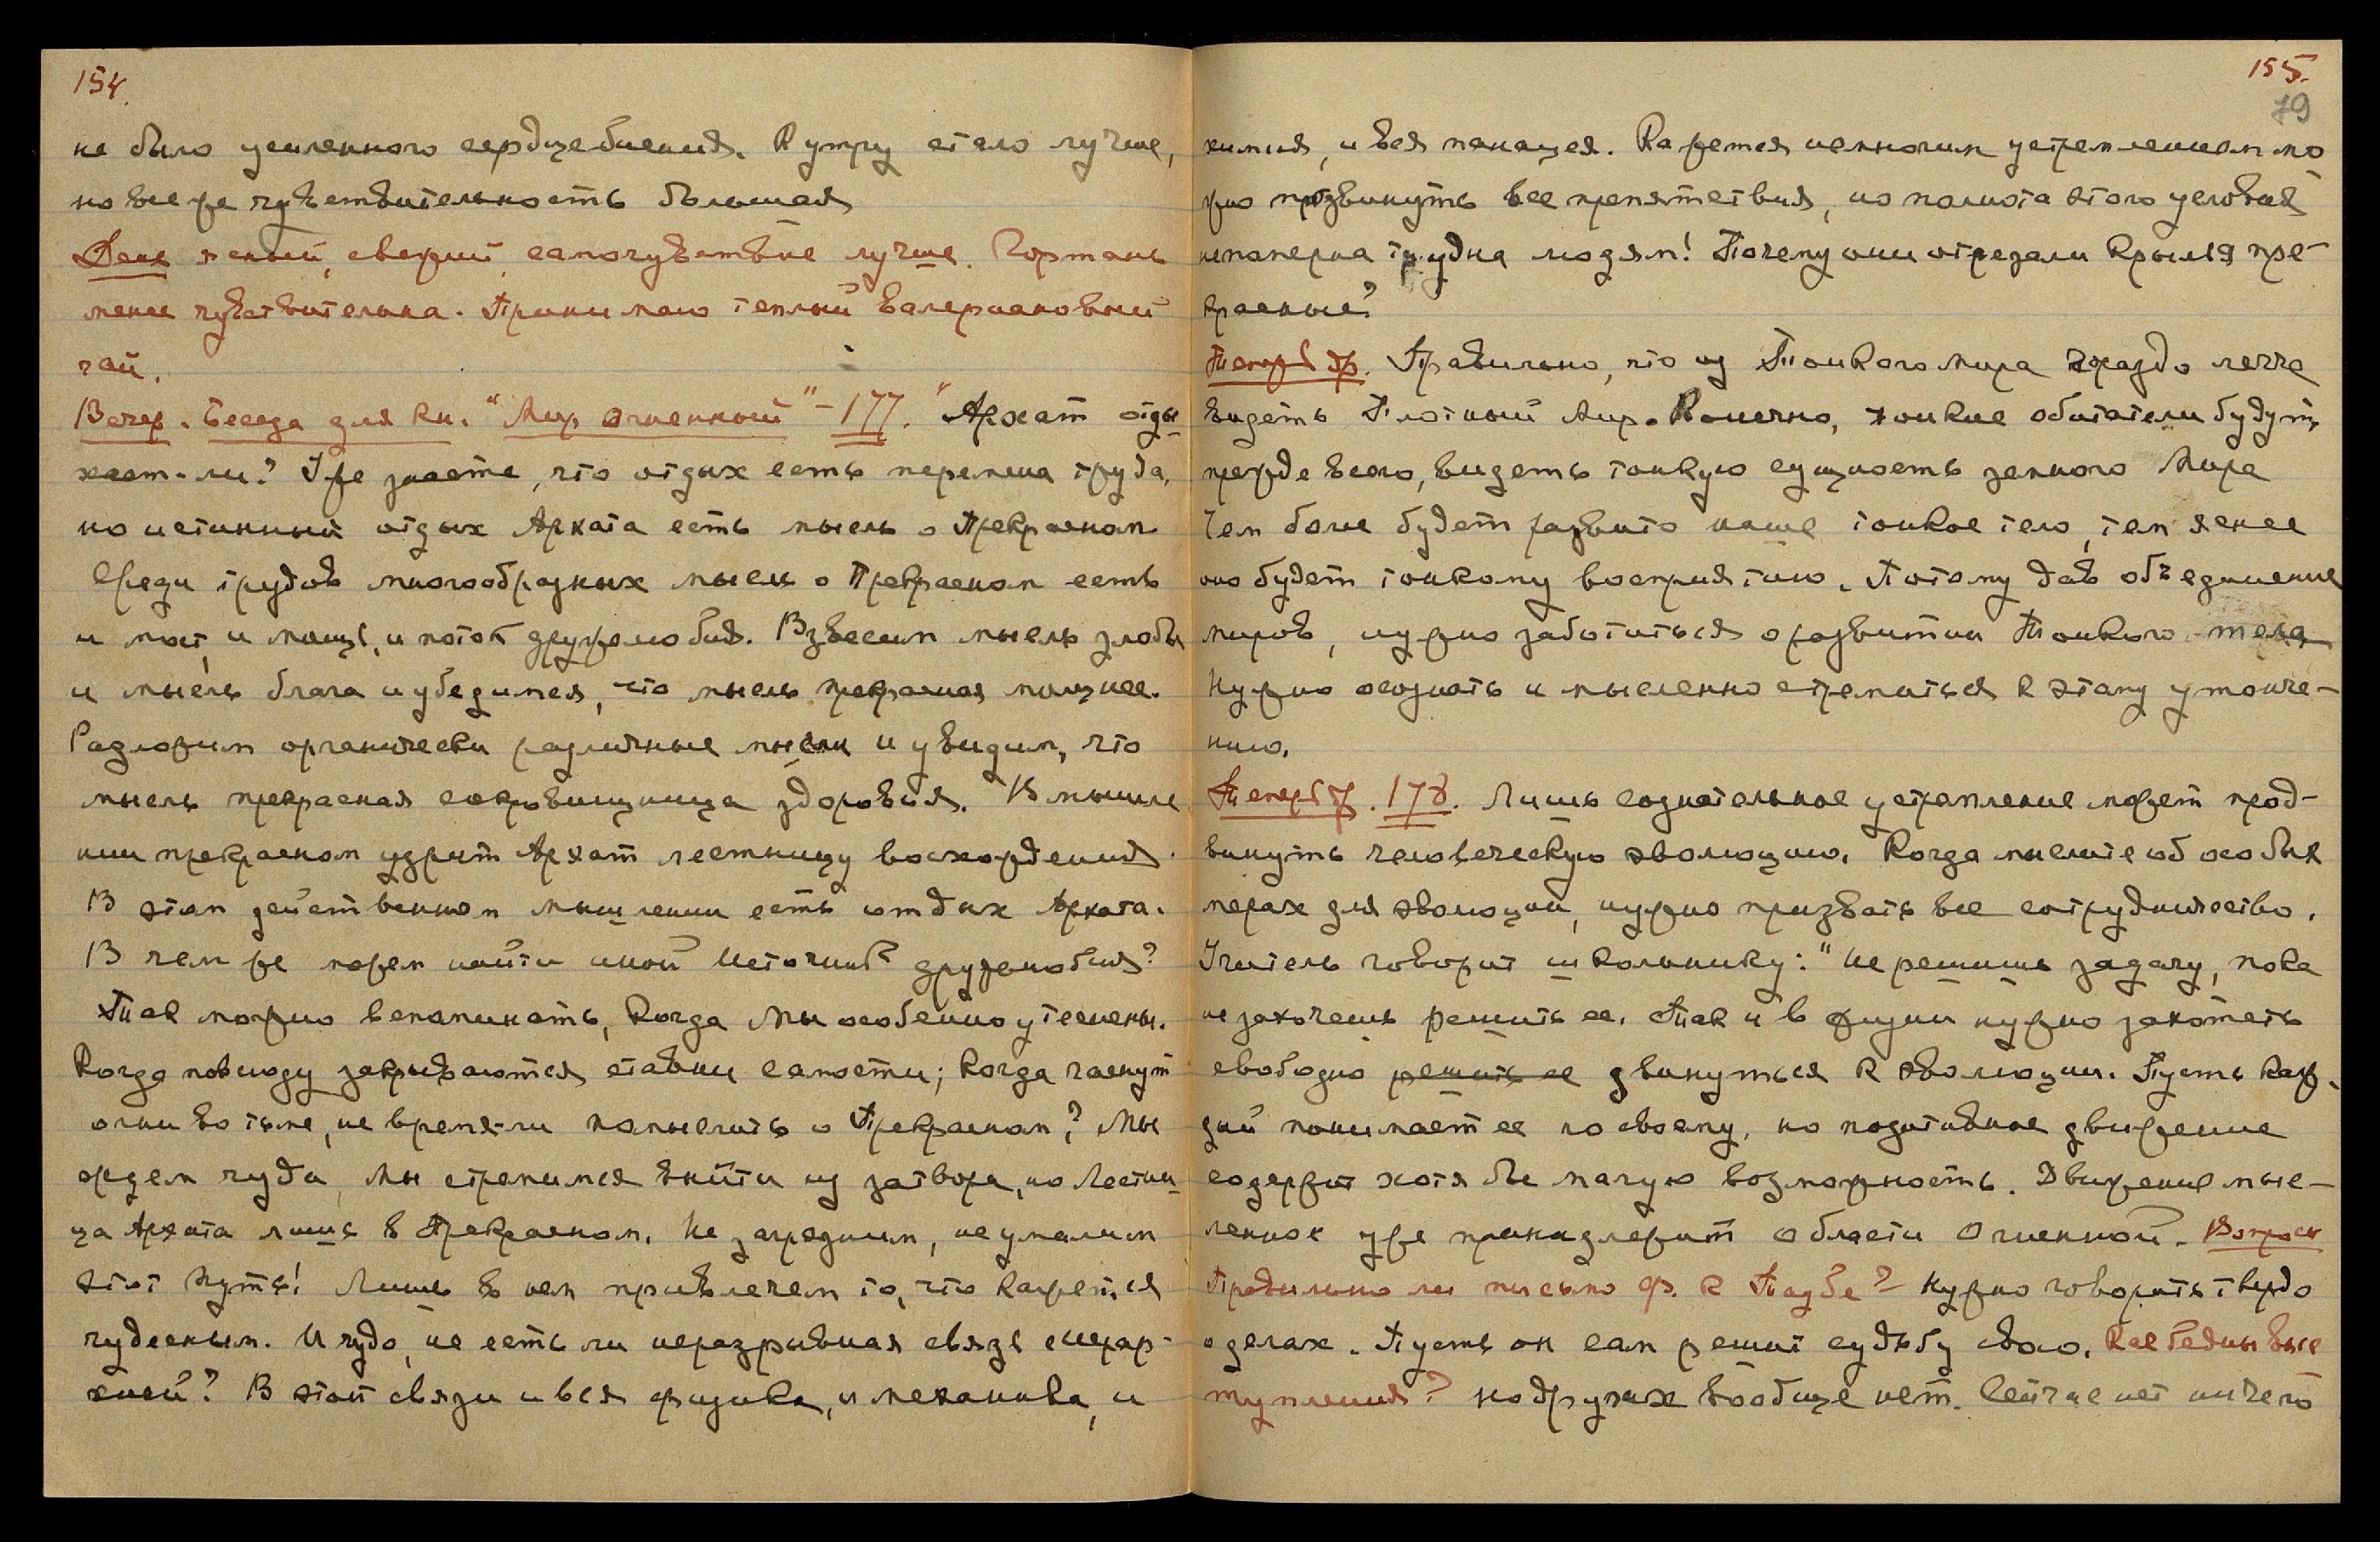 154.
не было усиленного сердцебиения. К утру стало лучше,
но все же чувствительность большая
День ясный, свежий, самочувствие лучше. Гортань
менее чувствительна. Принимаю теплый валериановый
чай.
Вечер. Беседа для кн. "Мир Огненный" - 177. "Архат отды-
хает-ли? Уже знаете, что отдых есть перемена труда,
но истинный отдых Архата есть мысль о Прекрасном
Среди трудов многообразных мысль о Прекрасном есть
и мост, и мощь, и поток дружелюбия. Взвесим мысль злобы
и мысль блага и убедимся, что мысль прекрасная мощнее.
Разложим органически различные мысли и увидим, что
мысль прекрасная сокровищница здоровья. В мышле
нии прекрасном узрит Архат лестницу восхождения.
В этом действенном мышлении есть отдых Архата.
В чем же можем найти иной Источник дружелюбия?
Так можно вспоминать, когда Мы особенно утеснены.
Когда повсюду закрываются ставни самости; когда гаснут
огни во тьме, не время-ли помыслить о Прекрасном? Мы
ждем чуда, Мы стремимся выйти из затвора, но Лестни-
ца Архата лишь в Прекрасном. Не загрязним, не умалим
этот Путь! Лишь в нем привлечем то, что кажется
чудесным. И чудо, не есть ли неразрывная связь с Иерар-
хией? В этой связи и вся физика, и механика, и
155.
79
химия, и вся панацея. Кажется немногим устремлением мо
жно продвинуть все препятствия, но полнота этого условия
непомерна трудна людям! Почему они отрезали крылья пре-
красные?
Теперь др. Правильно, что из Тонкого Мира гораздо легче
видеть Плотный Мир. Конечно, тонкие обитатели будут,
прежде всего, видеть тонкую сущность земного Мира
Чем более будет развито наше тонкое тело, тем яснее
оно будет тонкому восприятию. Потому для объединения
миров, нужно заботиться о развитии Тонкого тела
Нужно осознать и мысленно стремиться к этому утонче-
нию.
Теперь др. 178. Лишь сознательное устремление может прод-
винуть человеческую эволюцию. Когда мыслите об особых
мерах для эволюции, нужно призвать все сотрудничество.
Учитель говорит школьнику: "Не решишь задачу, пока
не захочешь решить ее. Так и в жизни нужно захотеть
свободно решить ее двинуться к эволюции. Пусть каж-
дый понимает ее по своему, но позитивное движение
содержит хотя бы малую возможность. Движение мыс-
ленное уже принадлежит области Огненной. Вопросы
Правильно ли письмо Ф. к Таубе? - Нужно говорить твердо
о делах. Пусть он сам решит судьбу свою. Как бедны выс
тупления? Но других вообще нет. Сейчас нет ничего